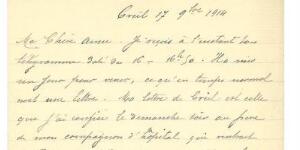 Creil 17 9bre 1914
Ma Chère Anna. Je reçois à l'instant ton
télégramme daté du 16 - 16h50. Il a mis
un jour pour venir, ce qu'en temps normal
met une lettre. Ma lettre de Creil est celle
que j'ai confiée le dimanche soir au père
de mon compagnon d'hôpital qui rentrait